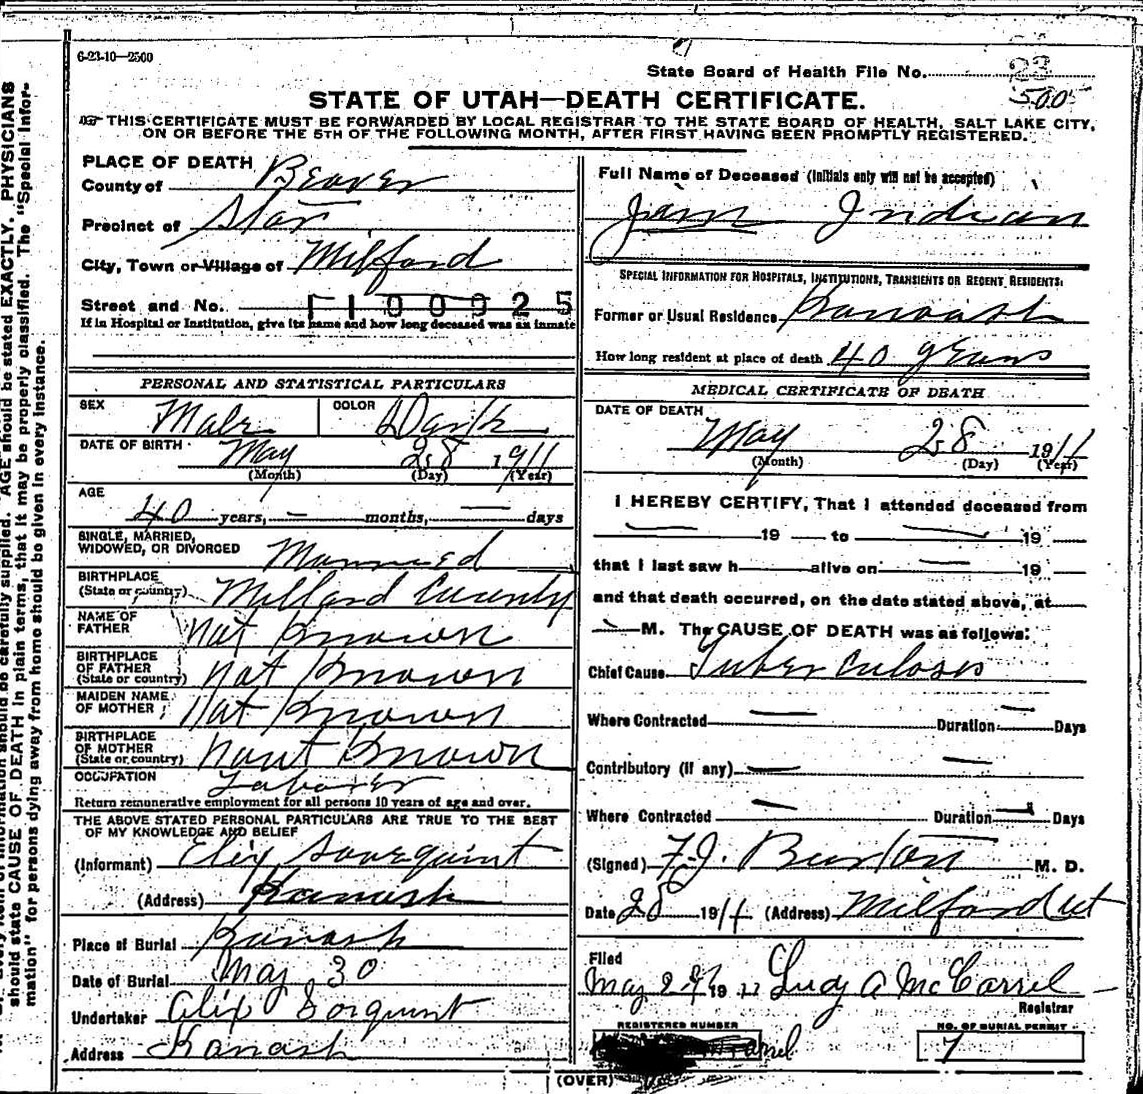 6-23-10—2500
State Board of Health File No. 23
500
STATE OF UTAH—DEATH CERTIFICATE.
THIS CERTIFICATE MUST BE FORWARDED BY LOCAL REGISTRAR TO THE STATE BOARD OF HEALTH, SALT LAKE CITY,
ON OR BEFORE THE 5TH OF THE FOLLOWING MONTH, AFTER FIRST HAVING BEEN PROMPTLY REGISTERED.
PLACE OF DEATH
County of Beaver
Precinct of Star
City, Town or Village of Milford
Street and No. 1100925
If in Hospital or Institution, give its name and how long deceased was an inmate
PERSONAL AND STATISTICAL PARTICULARS
SEX Male COLOR Dark
DATE OF BIRTH May 28 1911
(Month) (Day) (Year)
AGE
40 years, — months, — days
SINGLE, MARRIED,
WIDOWED, OR DIVORCED Married
BIRTHPLACE
(State or country) Millard County
NAME OF
FATHER Not Known
BIRTHPLACE
OF FATHER
(State or country) Not Known
MAIDEN NAME
OF MOTHER Not Known
BIRTHPLACE
OF MOTHER
(State or country) Nont Known
OCCUPATION Laborer
Return remunerative employment for all persons 10 years of age and over.
THE ABOVE STATED PERSONAL PARTICULARS ARE TRUE TO THE BEST
OF MY KNOWLEDGE AND BELIEF
(Informant)
(Address) Kanash
Place of Burial Kanash
Date of Burial May 30
Undertaker
Address Kanash
Full Name of Deceased (Initials only will not be accepted)
Jim Indian
SPECIAL INFORMATION FOR HOSPITALS, INSTITUTIONS, TRANSIENTS OR RECENT RESIDENTS:
Former or Usual Residence
How long resident at place of death 40 years
MEDICAL CERTIFICATE OF DEATH
DATE OF DEATH
May 28 1911
(Month) (Day) (Year)
I HEREBY CERTIFY, That I attended deceased from
— 19 — to — 19
that I last saw h alive on — 19
and that death occurred, on the date stated above, at
— M. The CAUSE OF DEATH was as follows:
Chief Cause Tuberculosis
Where Contracted — Duration — Days
Contributory (if any) — —
Where Contracted — Duration — Days
(Signed) F.J. Burton M. D.
Date 28 1911 (Address) Milford Ut
Filed
May 29 19 11 Ludy A McCarrel
Registrar
REGISTERED NUMBER
NO. OF BURIAL PERMIT
7
(OVER)
AGE should be stated EXACTLY. PHYSICIANS
should state CAUSE OF DEATH in plain terms, that it may be properly classified. The "Special Infor-
mation" for persons dying away from home should be given in every instance.